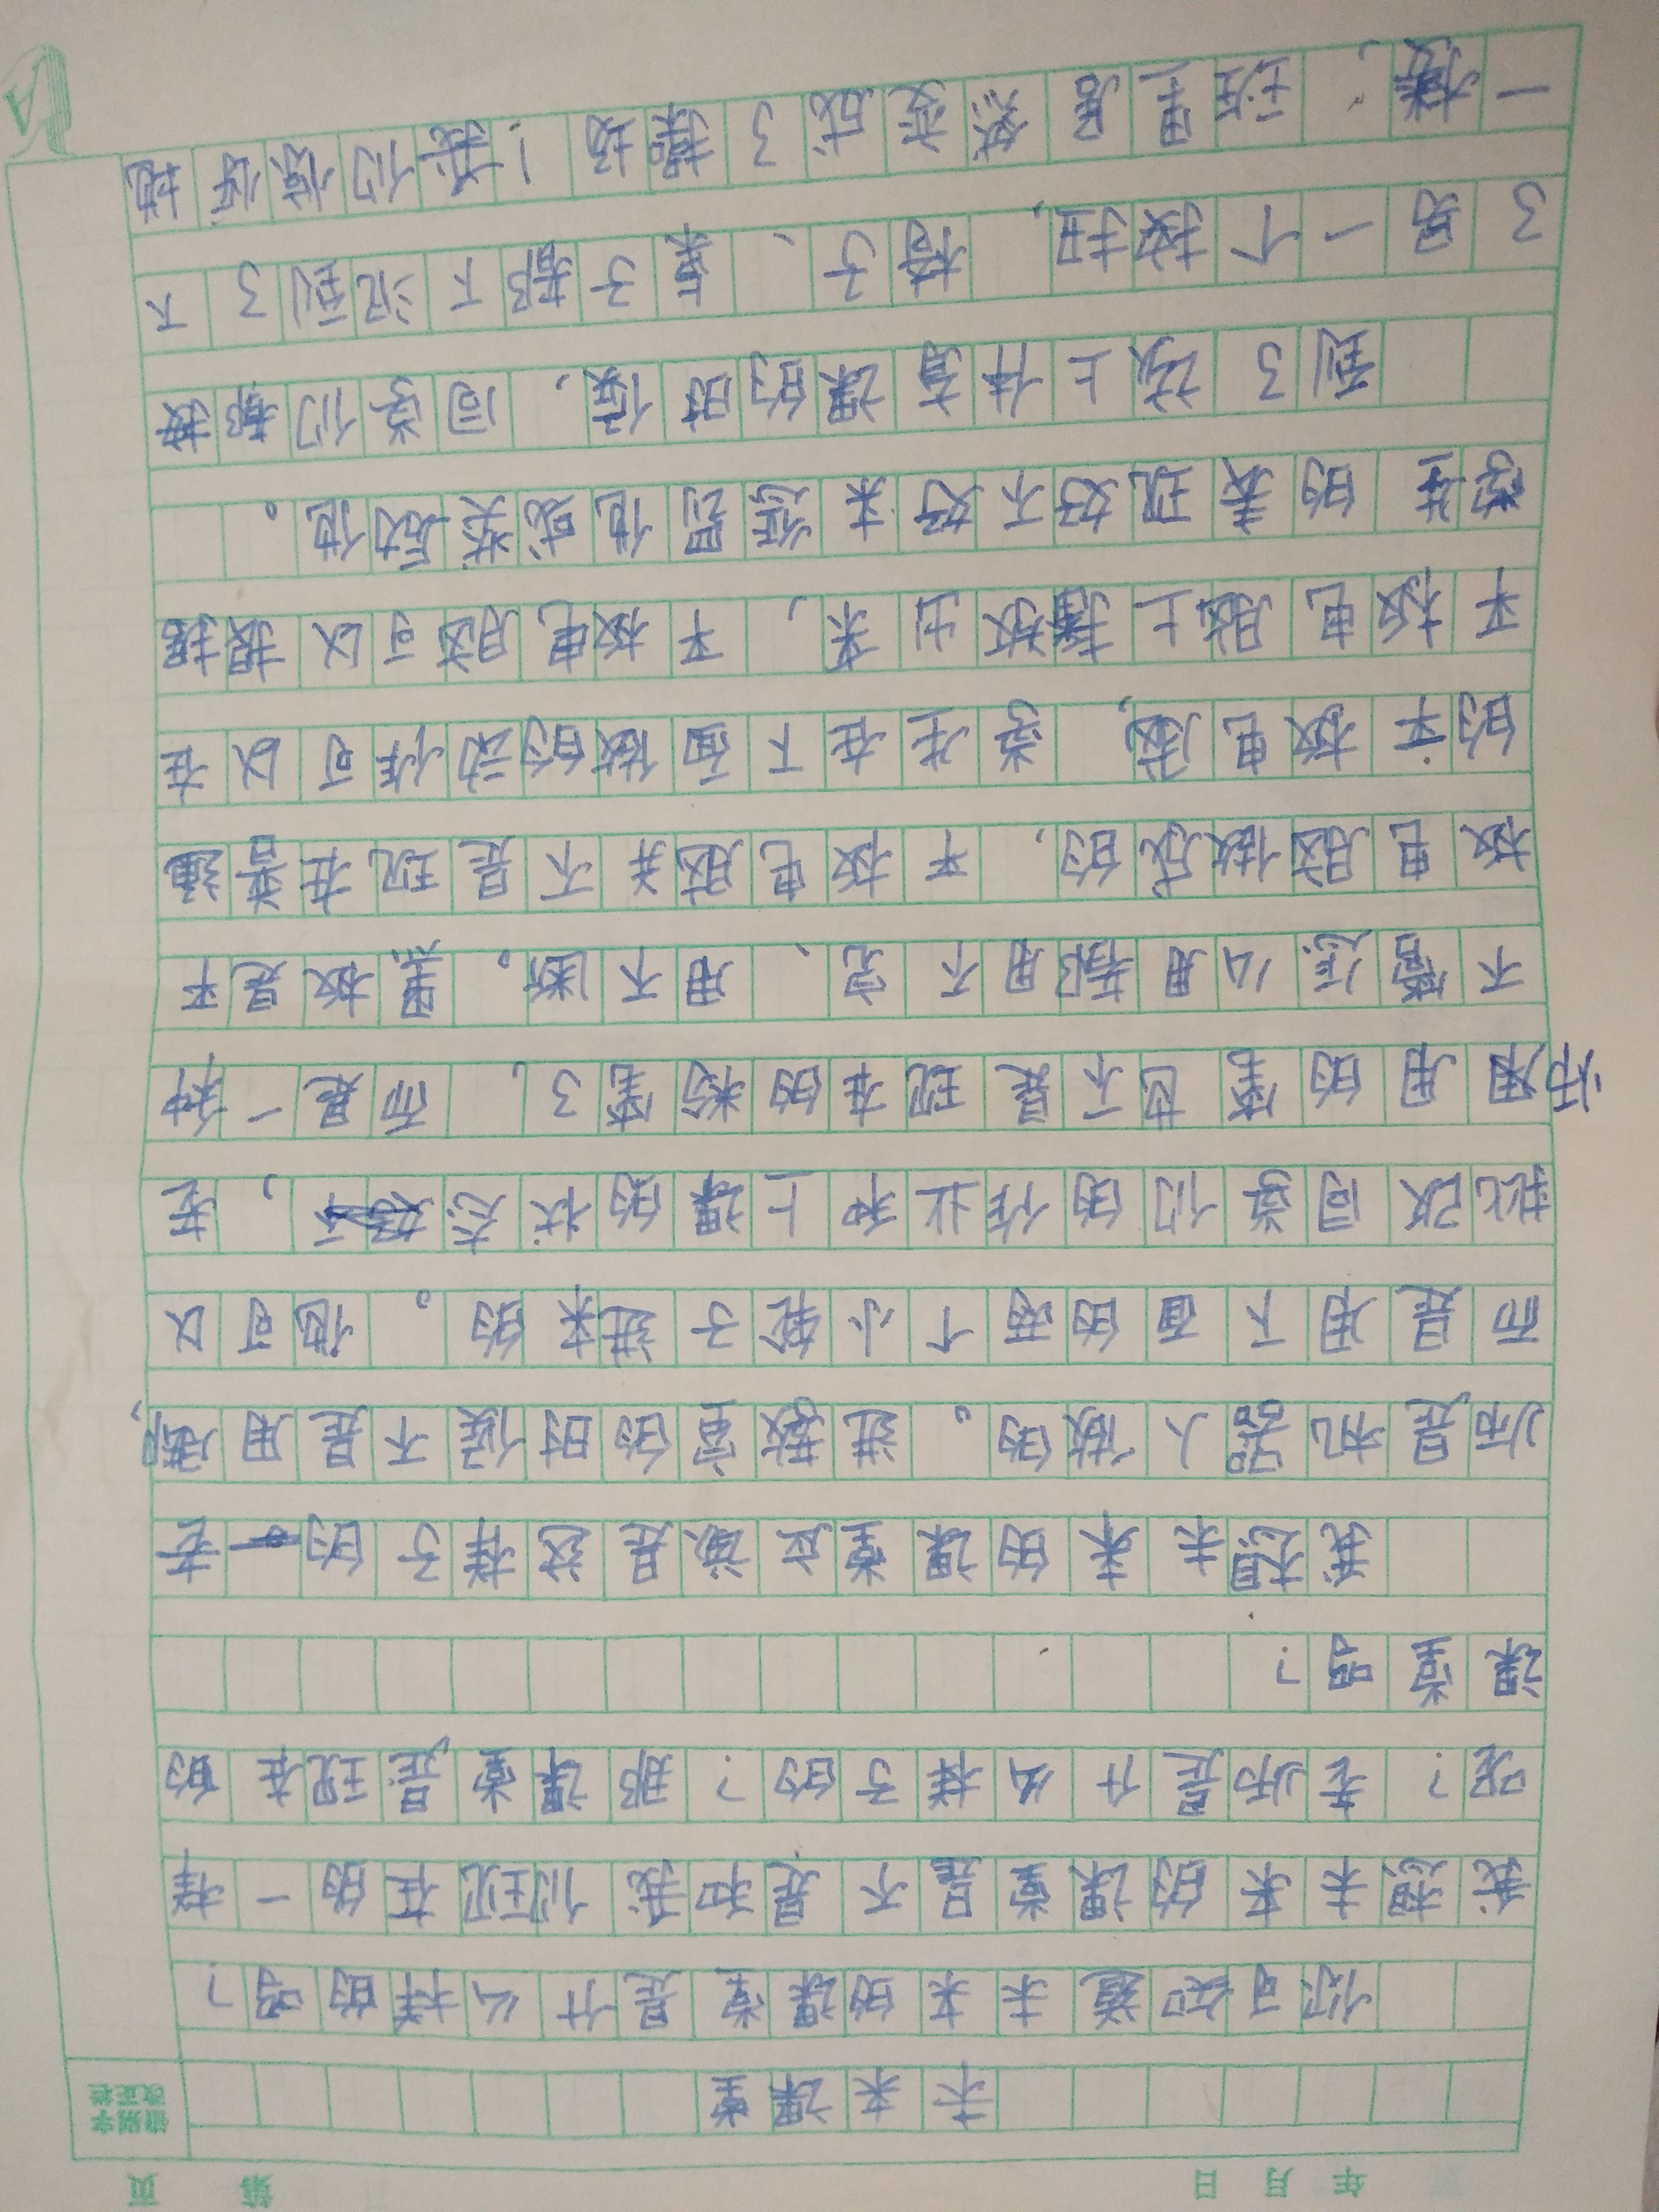 年 月 日 第 页
错别字
改正栏
未来课堂
你可知道未来的课堂是什么样的吗?
我想未来的课堂是不是和我们现在的一样
呢?老师是什么样子的?那课堂是现在的
课堂吗?
我想未来的课堂应该是这样子的 老
师是机器人做的。进教室的时候不是用腿,
而是用下面的两个小轮子进来的。他可以
批改同学们的作业和上课的状态 ,老
师用的笔也不是现在的粉笔了,而是一种
不管怎么用都用不完、用不断。黑板是平
板电脑做成的,平板电脑并不是现在普通
的平板电脑,学生在下面做的动作可以在
平板电脑上播放出来,平板电脑可以根据
学生的表现好不好来给他或奖励他。
到了该上体育课的时候,同学们都按
了另一个按扭,椅子、桌子都下沉到了下
一楼,这里居然变成了操场!我们愉快地